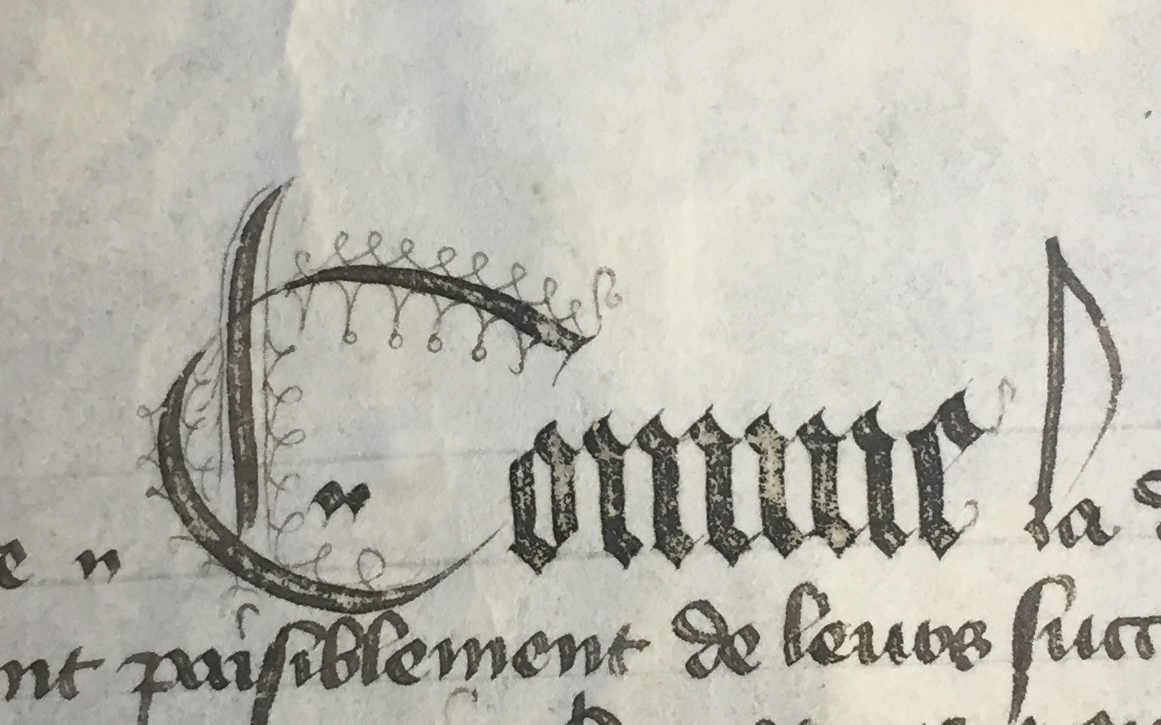 e Comme la
nt paisiblement de leurs succ